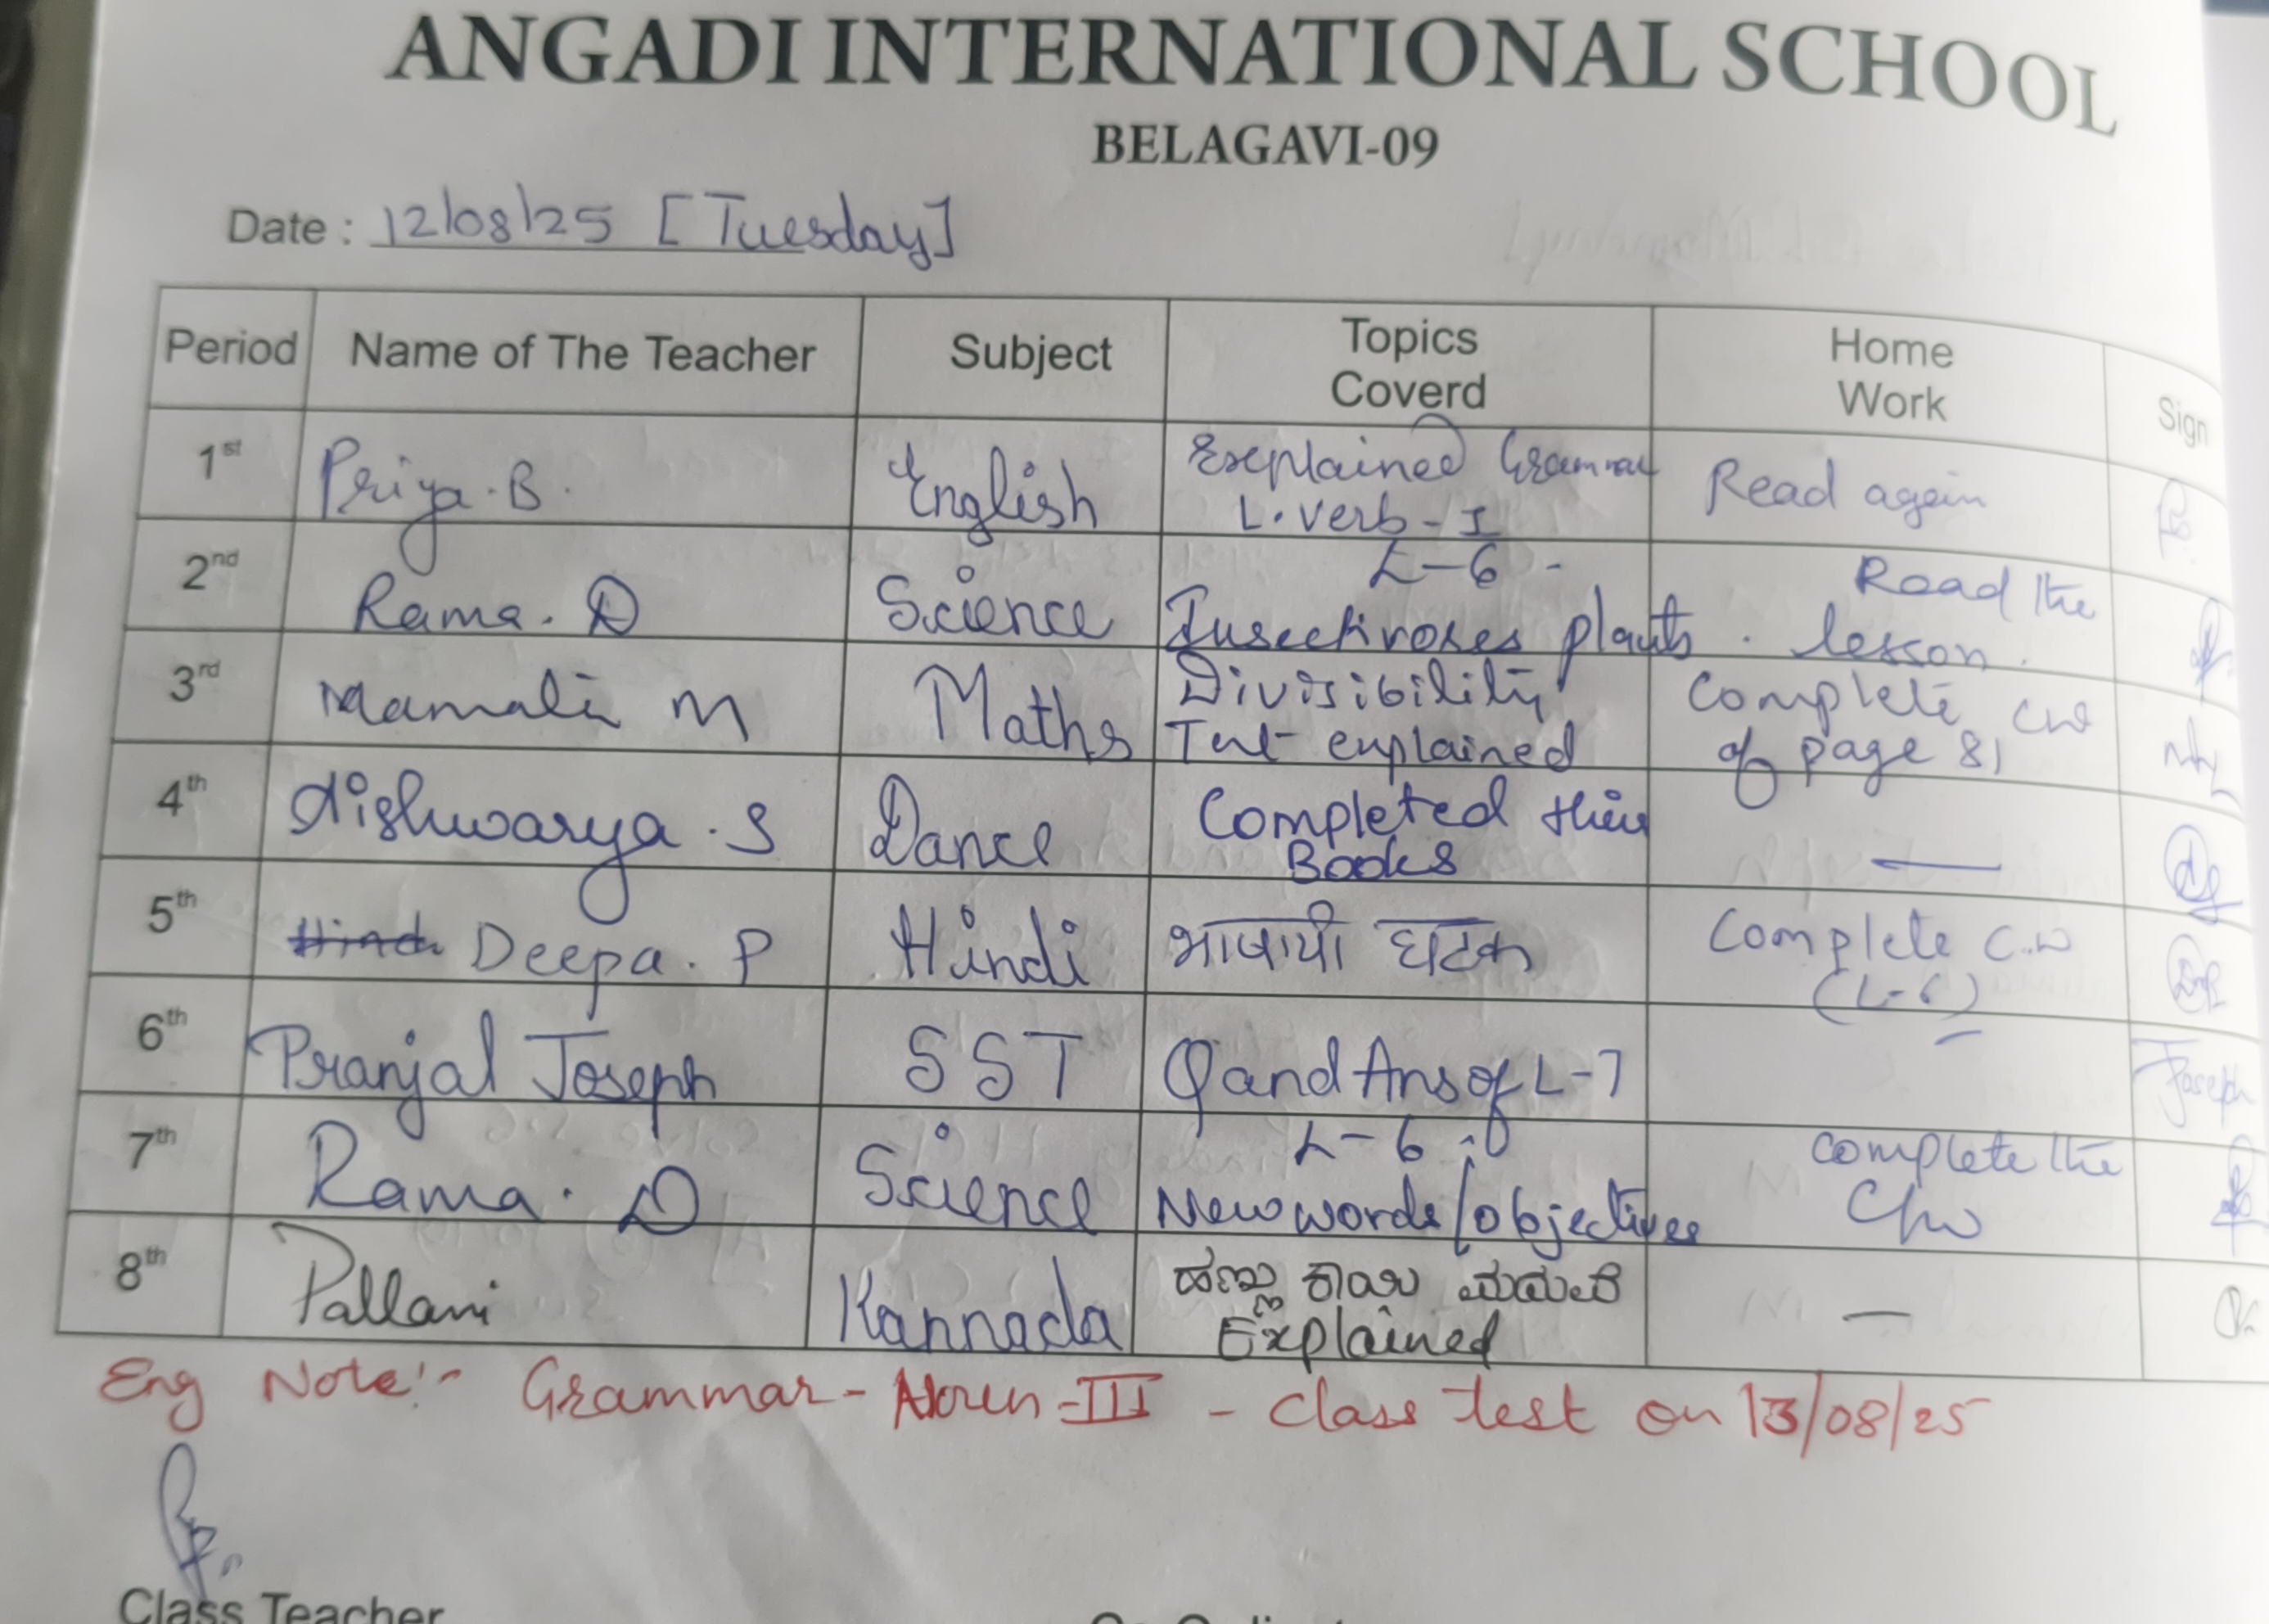 ANGADI INTERNATIONAL SCHOOL
BELAGAVI-09
Date : 12/08/25 [Tuesday]
Period Name of The Teacher Subject Topics Coverd Home Work Sign
1st Priya. B. English Explained Grammar L. Verb - I Read again
2nd Rama. D Science L-6 - Insectivoroses plants. Read the lesson.
3rd Mamali M Maths Divisibility Test explained Complete cw of page 81
4th Aishwarya. S Dance Completed their Books —
5th Deepa. P Hindi भाषायी घटक Complete C.W (L-6)
6th Pranjal Joseph SST Q and Ans of L-7 — Joseph
7th Rama. D Science L-6 New words/objectives Complete the C/w
8th Kannada Explained —
Eng Note:- Grammar - Noun - III - class test on 13/08/25
Class Teacher